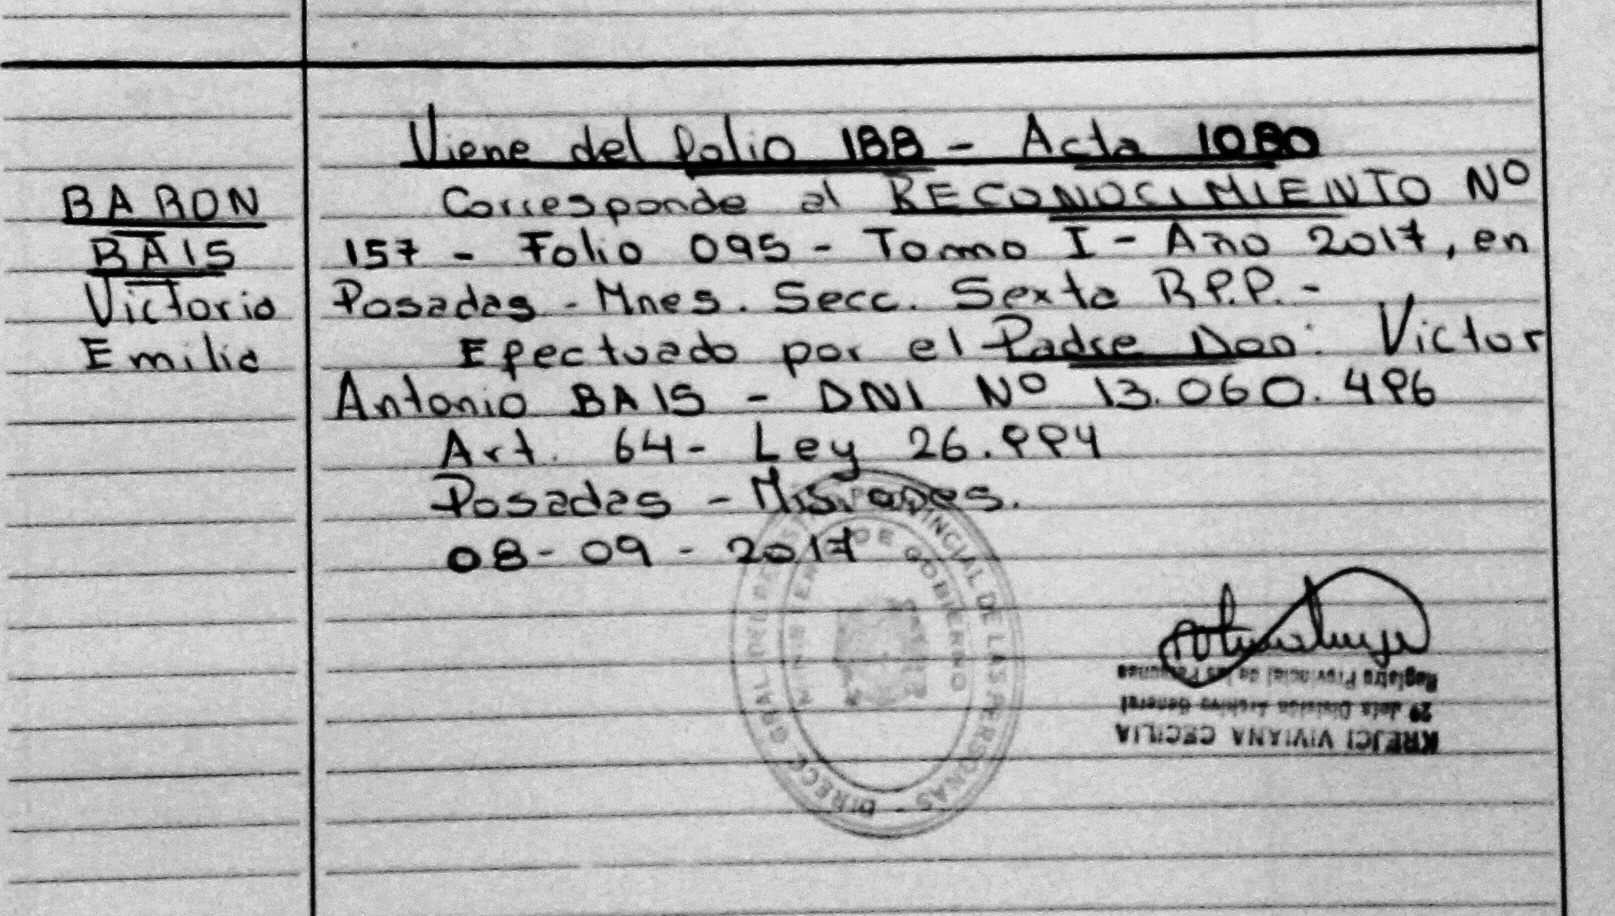 Viene del folio 188 - Acta 1080
BARON
BAIS
Victoria
Emilia
Corresponde al RECONOCIMIENTO Nº
157 - Folio 095 - Tomo I - Año 2017, en
Posadas - Mnes. Secc. Sexta R.P.P. -
Efectuado por el Padre Don: Victor
Antonio BAIS - DNI Nº 13.060.496
Art. 64 - Ley 26.994
Posadas - Misiones.
08-09-2017
DIRECC GRAL PROVINCIAL DE LAS PERSONAS
MINISTERIO DE GOBIERNO
KREJCI VIVIANA CECILIA
2º Jefa División Archivo General
Registro Provincial de las Personas